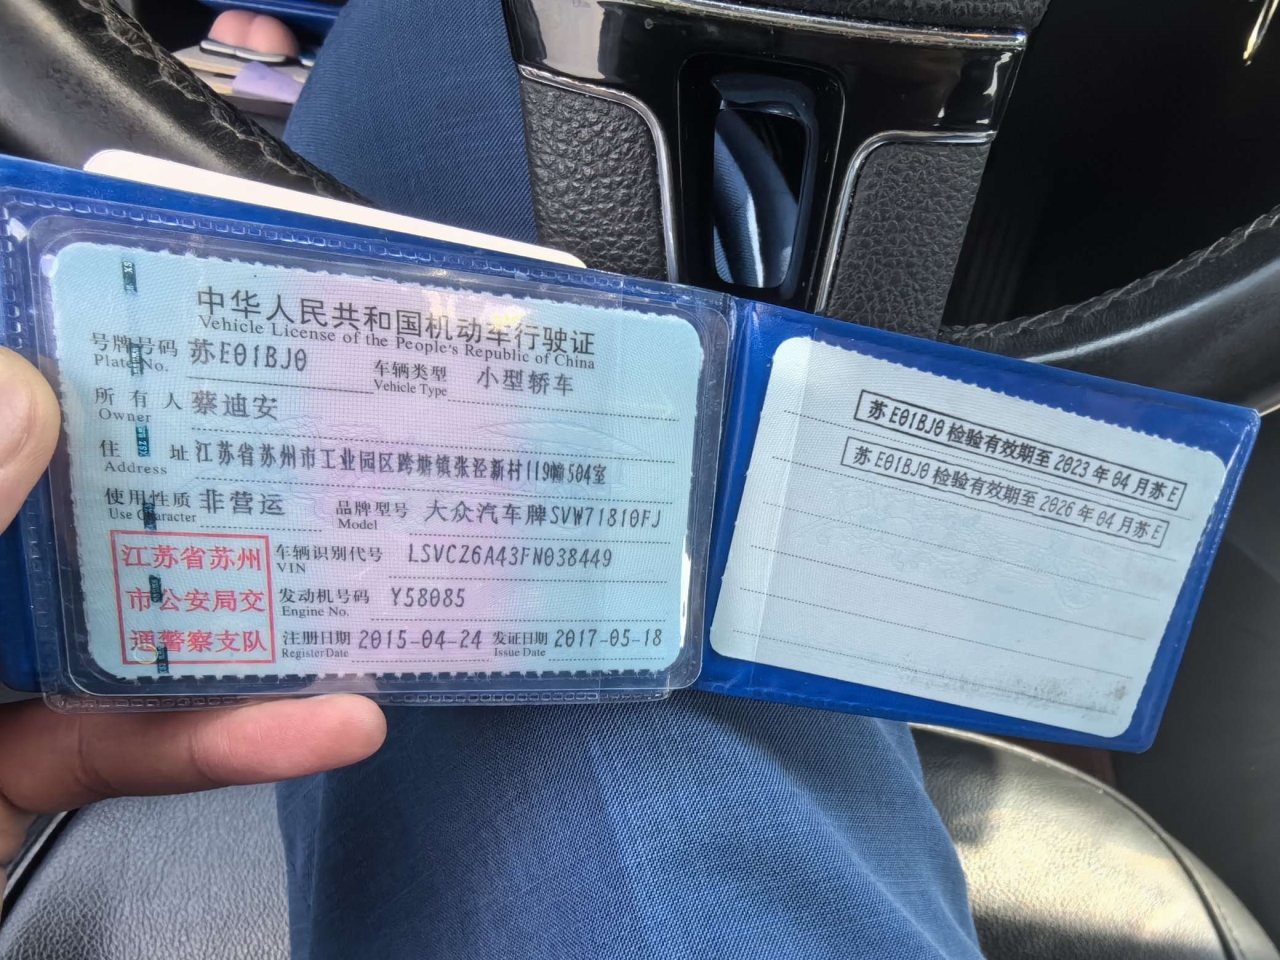 中华人民共和国机动车行驶证
Vehicle License of the People's Republic of China
号牌号码 苏E01BJ0 车辆类型 小型轿车
Plate No. Vehicle Type
所有人 蔡迪安
Owner
住址 江苏省苏州市工业园区跨塘镇张泾新村119幢504室
Address
使用性质 非营运 品牌型号 大众汽车牌SVW71810FJ
Use Character Model
江苏省苏州
市公安局交
通警察支队
车辆识别代号 LSVC26A43FN038449
VIN
发动机号码 Y58085
Engine No.
注册日期 2015-04-24 发证日期 2017-05-18
Register Date Issue Date
苏E01BJ0检验有效期至2023年04月苏E
苏E01BJ0检验有效期至2026年04月苏E